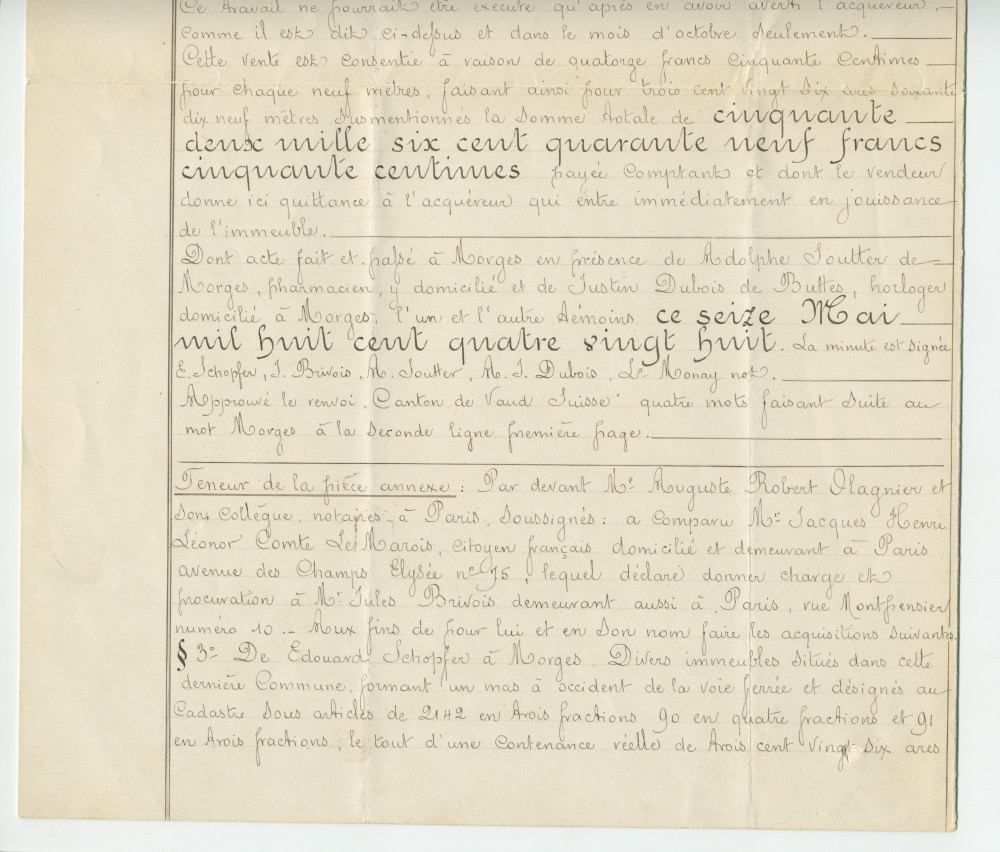 Ce travail ne pourrait être exécuté qu'après en avoir averti l'acquéreur.
comme il est dit ci-dessus et dans le mois d'octobre seulement.
Cette vente est consentie à raison de quatorze francs cinquante centimes
pour chaque neuf mètres, faisant ainsi pour trois cent vingt six ares soixante
dix neuf mètres susmentionnés la somme totale de cinquante
deux mille six cent quarante neuf francs
cinquante centimes payée comptant et dont le vendeur
donne ici quittance à l'acquéreur qui entre immédiatement en jouissance
de l'immeuble.
Dont acte fait et passé à Morges en présence de Adolphe Soutter de
Morges, pharmacien, y domicilié et de Justin Dubois de Buttes, horloger
domicilié à Morges, l'un et l'autre témoins ce seize Mai
mil huit cent quatre vingt huit. La minute est signée
E. Schopfer, J. Brivois, A. Soutter, A. J. Dubois, Ls Monay not.
Approuvé le renvoi. Canton de Vaud Suisse quatre mots faisant suite au
mot Morges à la seconde ligne première page.
Teneur de la pièce annexe : Par devant Me Auguste Robert Olagnier et
son collègue, notaires à Paris, soussignés : a comparu Mr Jacques Henri
Léonor Comte Le Marois, citoyen français domicilié et demeurant à Paris
avenue des Champs Elysée no 95, lequel déclare donner charge et
procuration à Mr Jules Brivois demeurant aussi à Paris, rue Montpensier
numéro 10 .- Aux fins de pour lui et en son nom faire les acquisitions suivantes
§ 3o De Edouard Schopfer à Morges. Divers immeubles situés dans cette
dernière Commune, formant un mas à occident de la voie ferrée et désignés au
Cadastre sous articles de 2142 en trois fractions 90 en quatre fractions et 91
en trois fractions, le tout d'une contenance réelle de trois cent vingt six ares